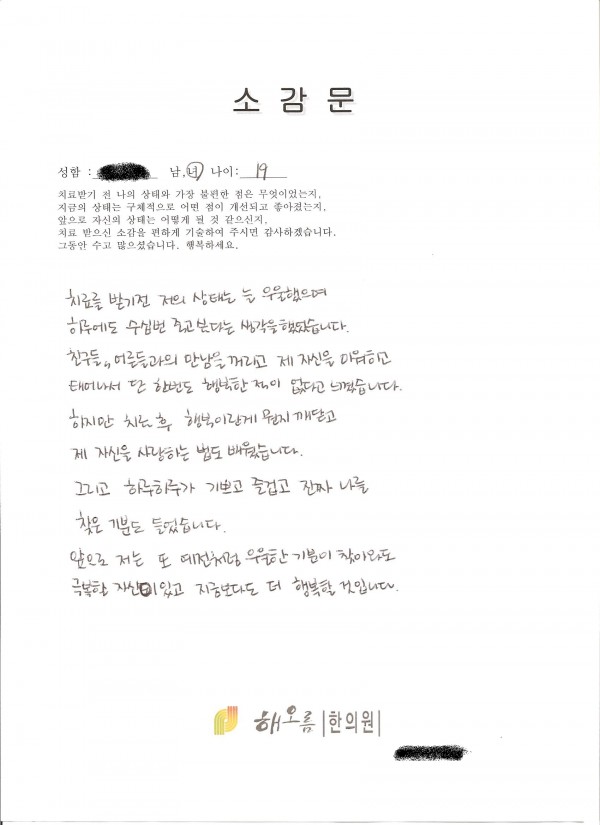 소 감 문
성함 : 남,녀 나이: 19
치료받기 전 나의 상태와 가장 불편한 점은 무엇이었는지,
지금의 상태는 구체적으로 어떤 점이 개선되고 좋아졌는지.
앞으로 자신의 상태는 어떻게 될 것 같으신지.
치료 받으신 소감을 편하게 기술하여 주시면 감사하겠습니다.
그동안 수고 많으셨습니다. 행복하세요.
치료를 받기전 저의 상태는 늘 우울했으며
하루에도 수십번 죽고싶다는 생각을했었습니다.
친구들, 어른들과의 만남을 꺼리고 제 자신을 미워하고
태어나서 단 한번도 행복한 적이 없다고 느꼈습니다.
하지만 치료 후 행복이란게 뭔지 깨닫고
제 자신을 사랑하는 법도 배웠습니다.
그리고 하루하루가 기쁘고 즐겁고 진짜 나를
찾은 기분도 들었습니다.
앞으로 저는 또 예전처럼 우울한 기분이 찾아와도
극복할 자신이 있고 지금보다도 더 행복할 것입니다.
해오름 한의원